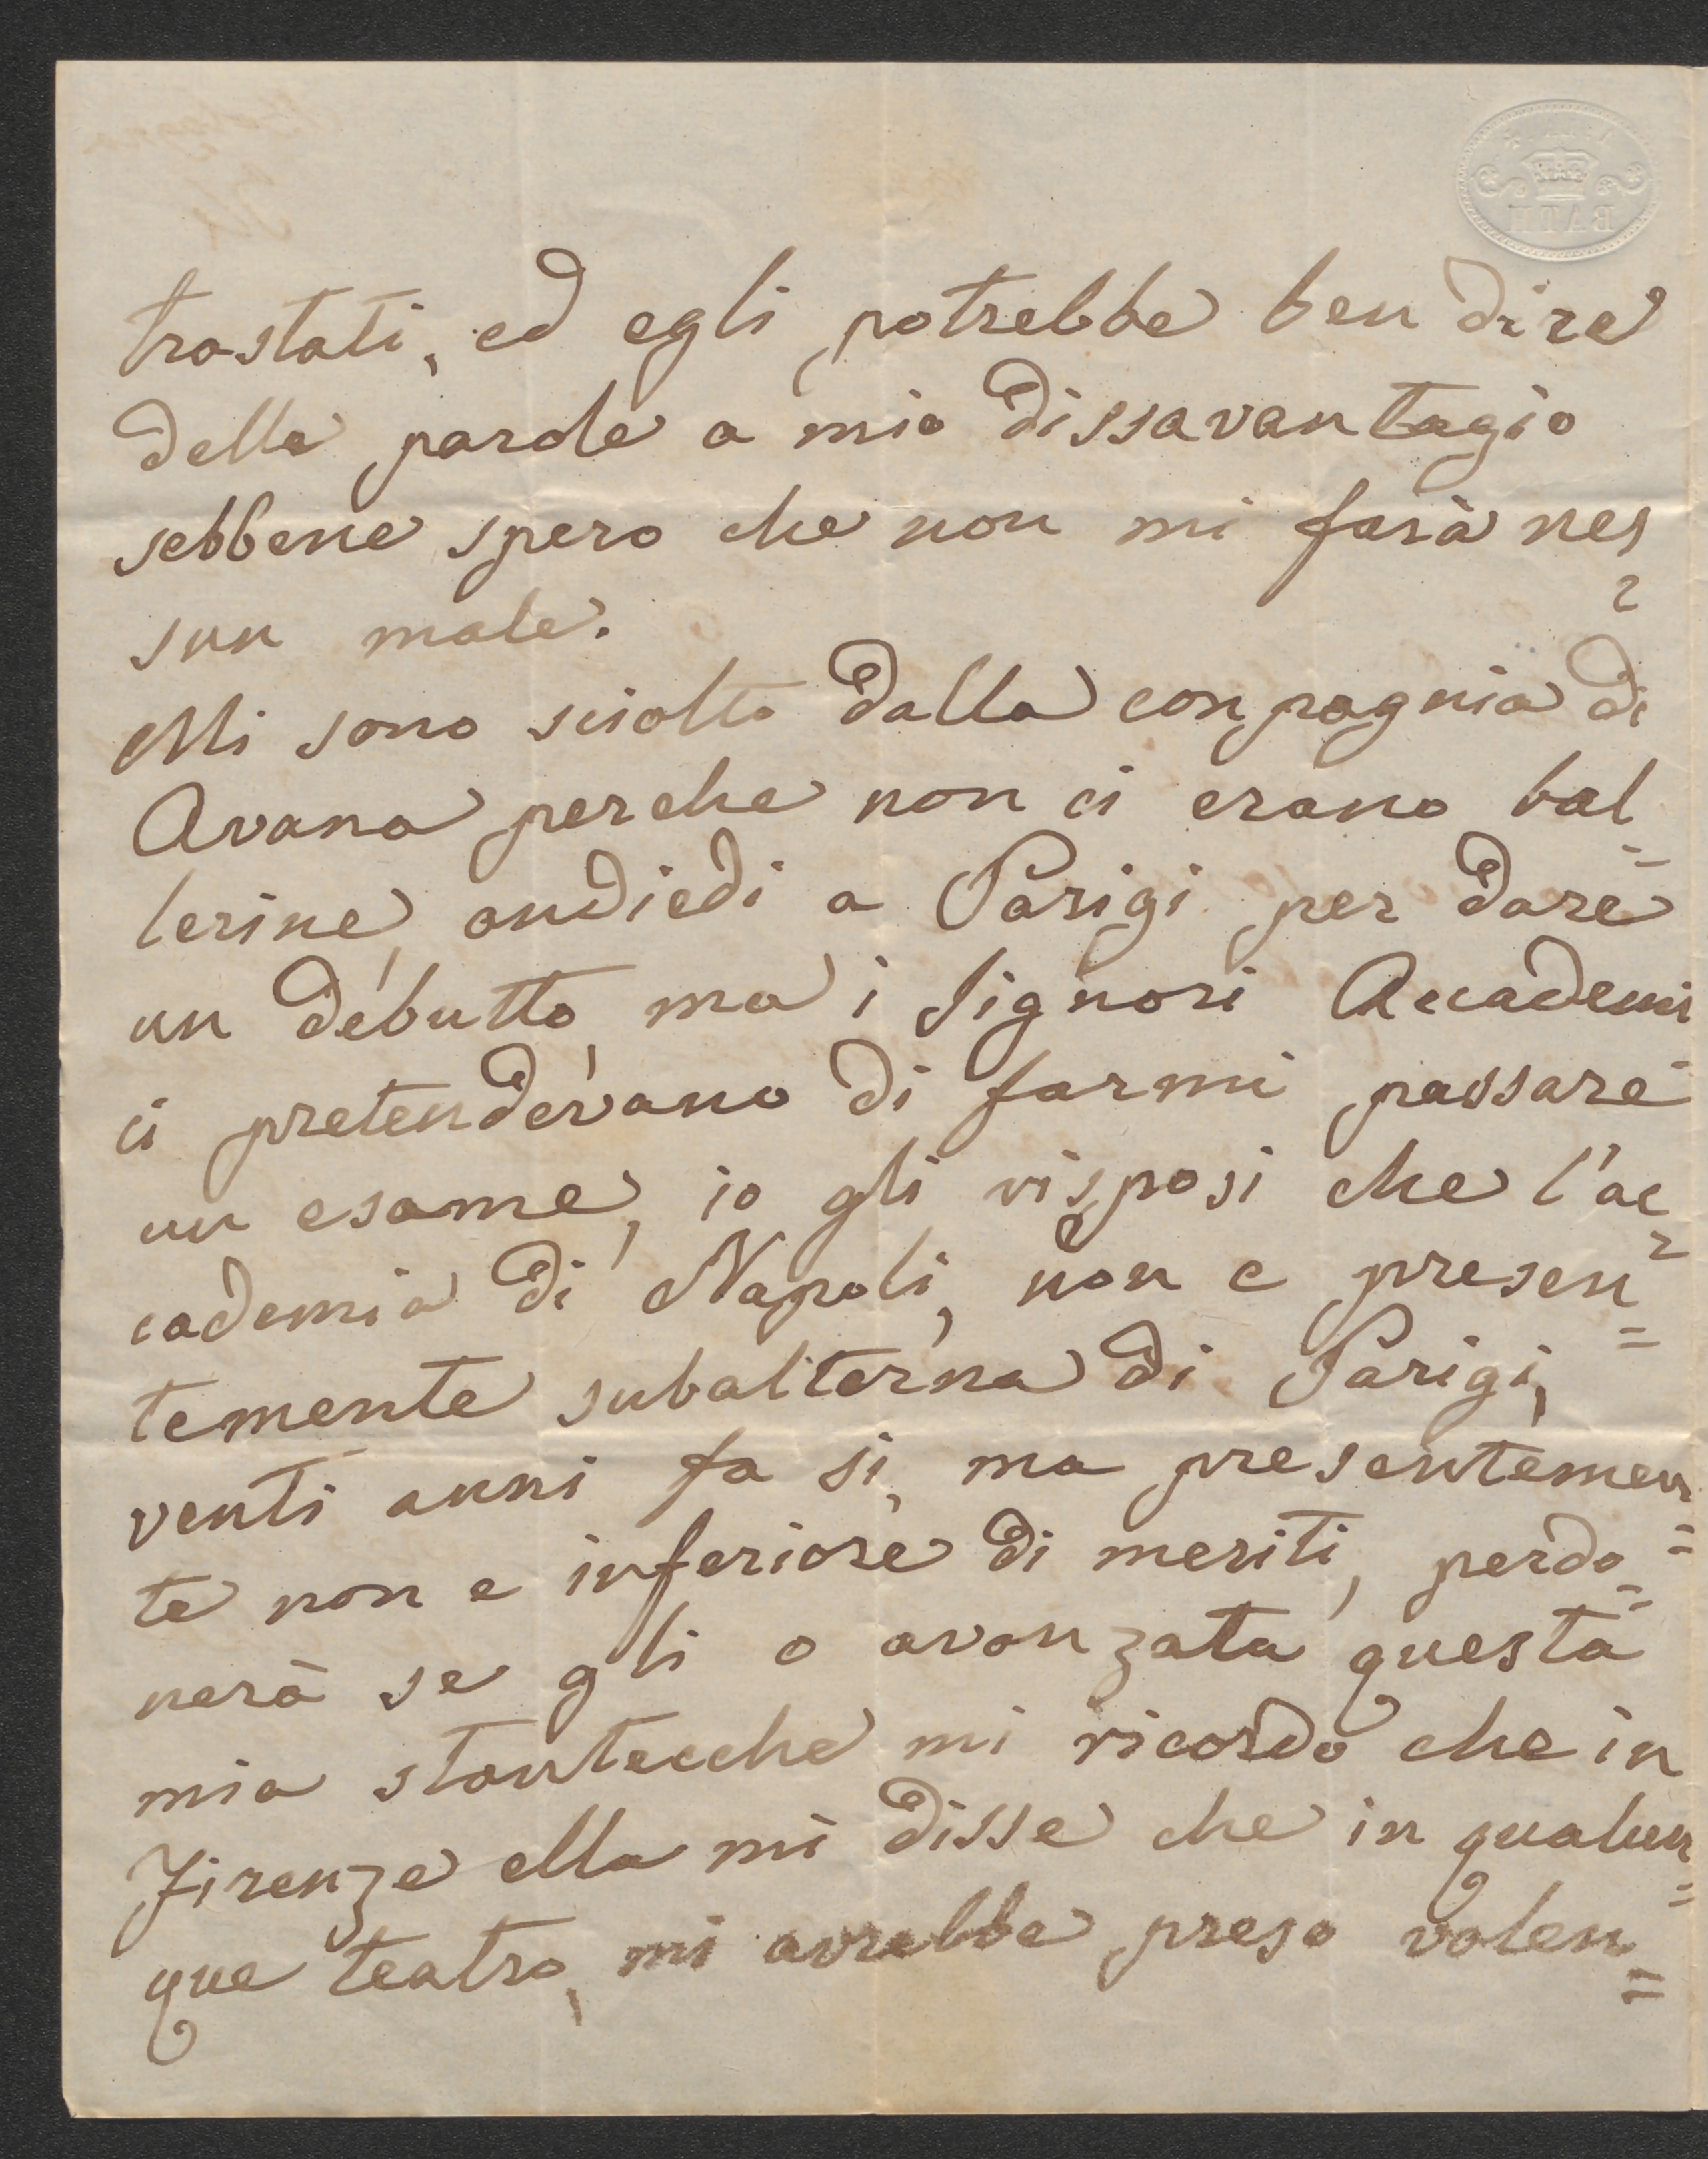 BATH
trastati, ed egli potrebbe ben dire
delle parole a mio dissavantagio
sebbene spero che non mi farà nes=
sun male.
Mi sono sciolto dalla conpagnia di
Avana perche non ci erano bal=
lerine, andiedi a Parigi per dare
un debutto, ma i Signori Accademi
ci pretendevano di farmi passare
un esame, io gli risposi che l'ac=
cademia di Napoli, non e presen=
temente subalterna di Parigi,
venti anni fa si, ma presentemen=
te non e inferiore di meriti, perdo=
nerà se gli o avanzata questa
mia stantecche mi ricordo che in
Firenze ella mi disse che in qualun=
que teatro, mi avrebbe preso volen=